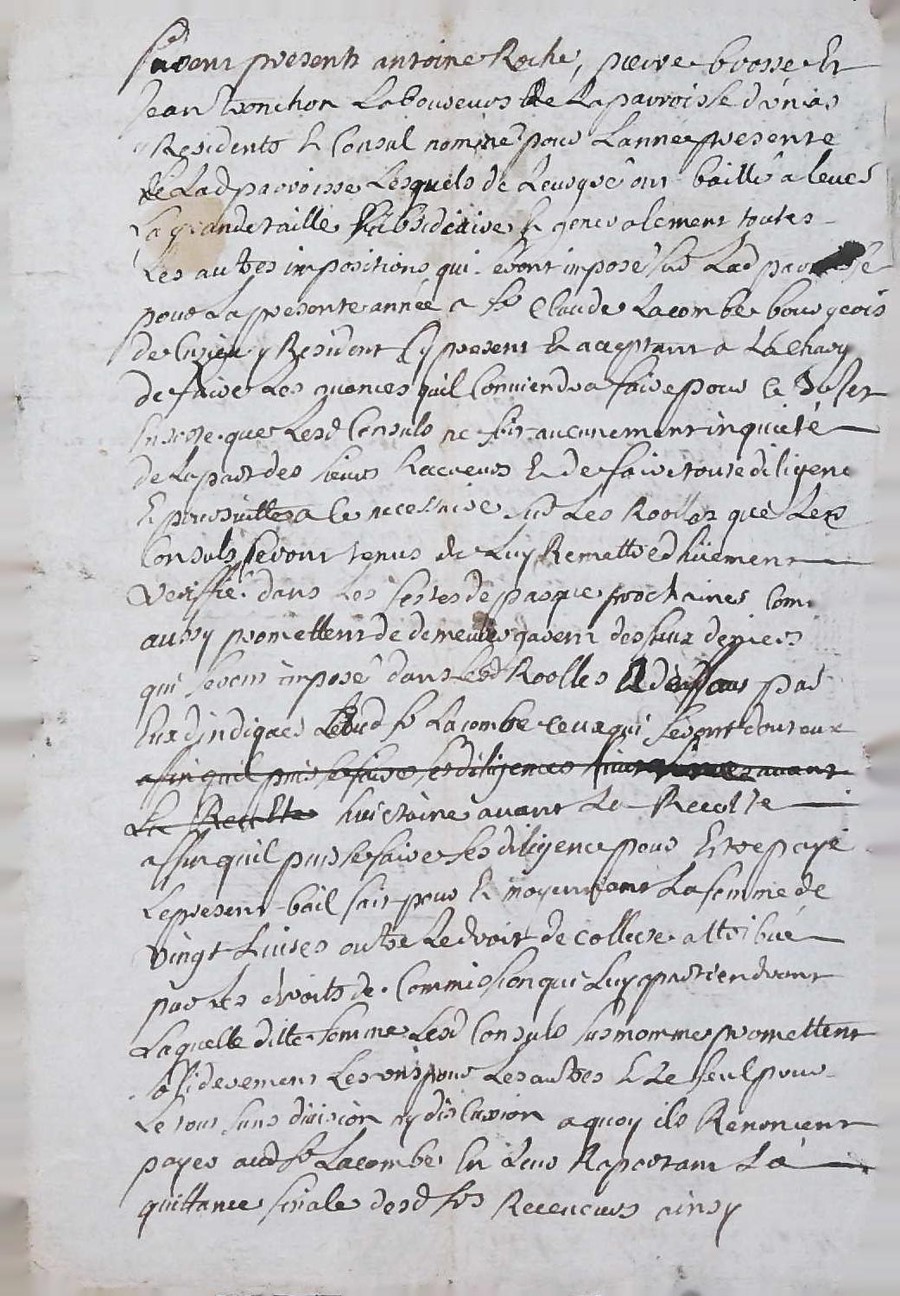 furent presents antoine Roche, pierre brosse Et
Jean Tronchon Laboureurs de La parroisse d'unias
Residents Et Consul nommé pour L'année presente
de Lad parroisse Lesquels de Leur gré ont baillé a lever
La grande taille subsidiaire Et generalement toutes
Les autres impositions qui seront imposé sur Lad parroisse
pour La presente année a sr Claude Lacombe bourgeois
de Cuzieu y Resident Cy present Et acceptant a La charg
de faire Les avances quil Conviendra faire pour ce Sujet
En sorte que Lesd Consuls ne soit aucunement inquieté
de La part des sieurs Receveurs Et de faire toute diligenc
Et poursuittes a ce necessaire sur Les Roolles que Lesd
Consuls seront tenus de Luy Remettre duement
Veriffié dans Les festes de pasque prochaines Com
aussy promettent de demeurer garent des taux deniers
qui seront imposé dans Lesd Roolles Et par
Eux d'indiquer aud sr Lacombe ceux qui seront douteux
affin quil puisse faire ses diligences avant
La Recolte huictaine avant La Recolte
affin quil puisse faire ses diligence pour Estre payé
Le present bail fait pour Et moyennant La somme de
Vingt Livres outre Le droit de collecte attribué
par Les droits de Commission qui Luy apartiendront
Laquelle ditte somme Lesd Consuls susnommes promettent
solidairement Les uns pour Les autres Et Le seul pour
Le tout sans division ny discution a quoy ils Renoncent
payer aud sr Lacombe En Leur Raportant La
quittance finale desd srs Receveurs ainsy